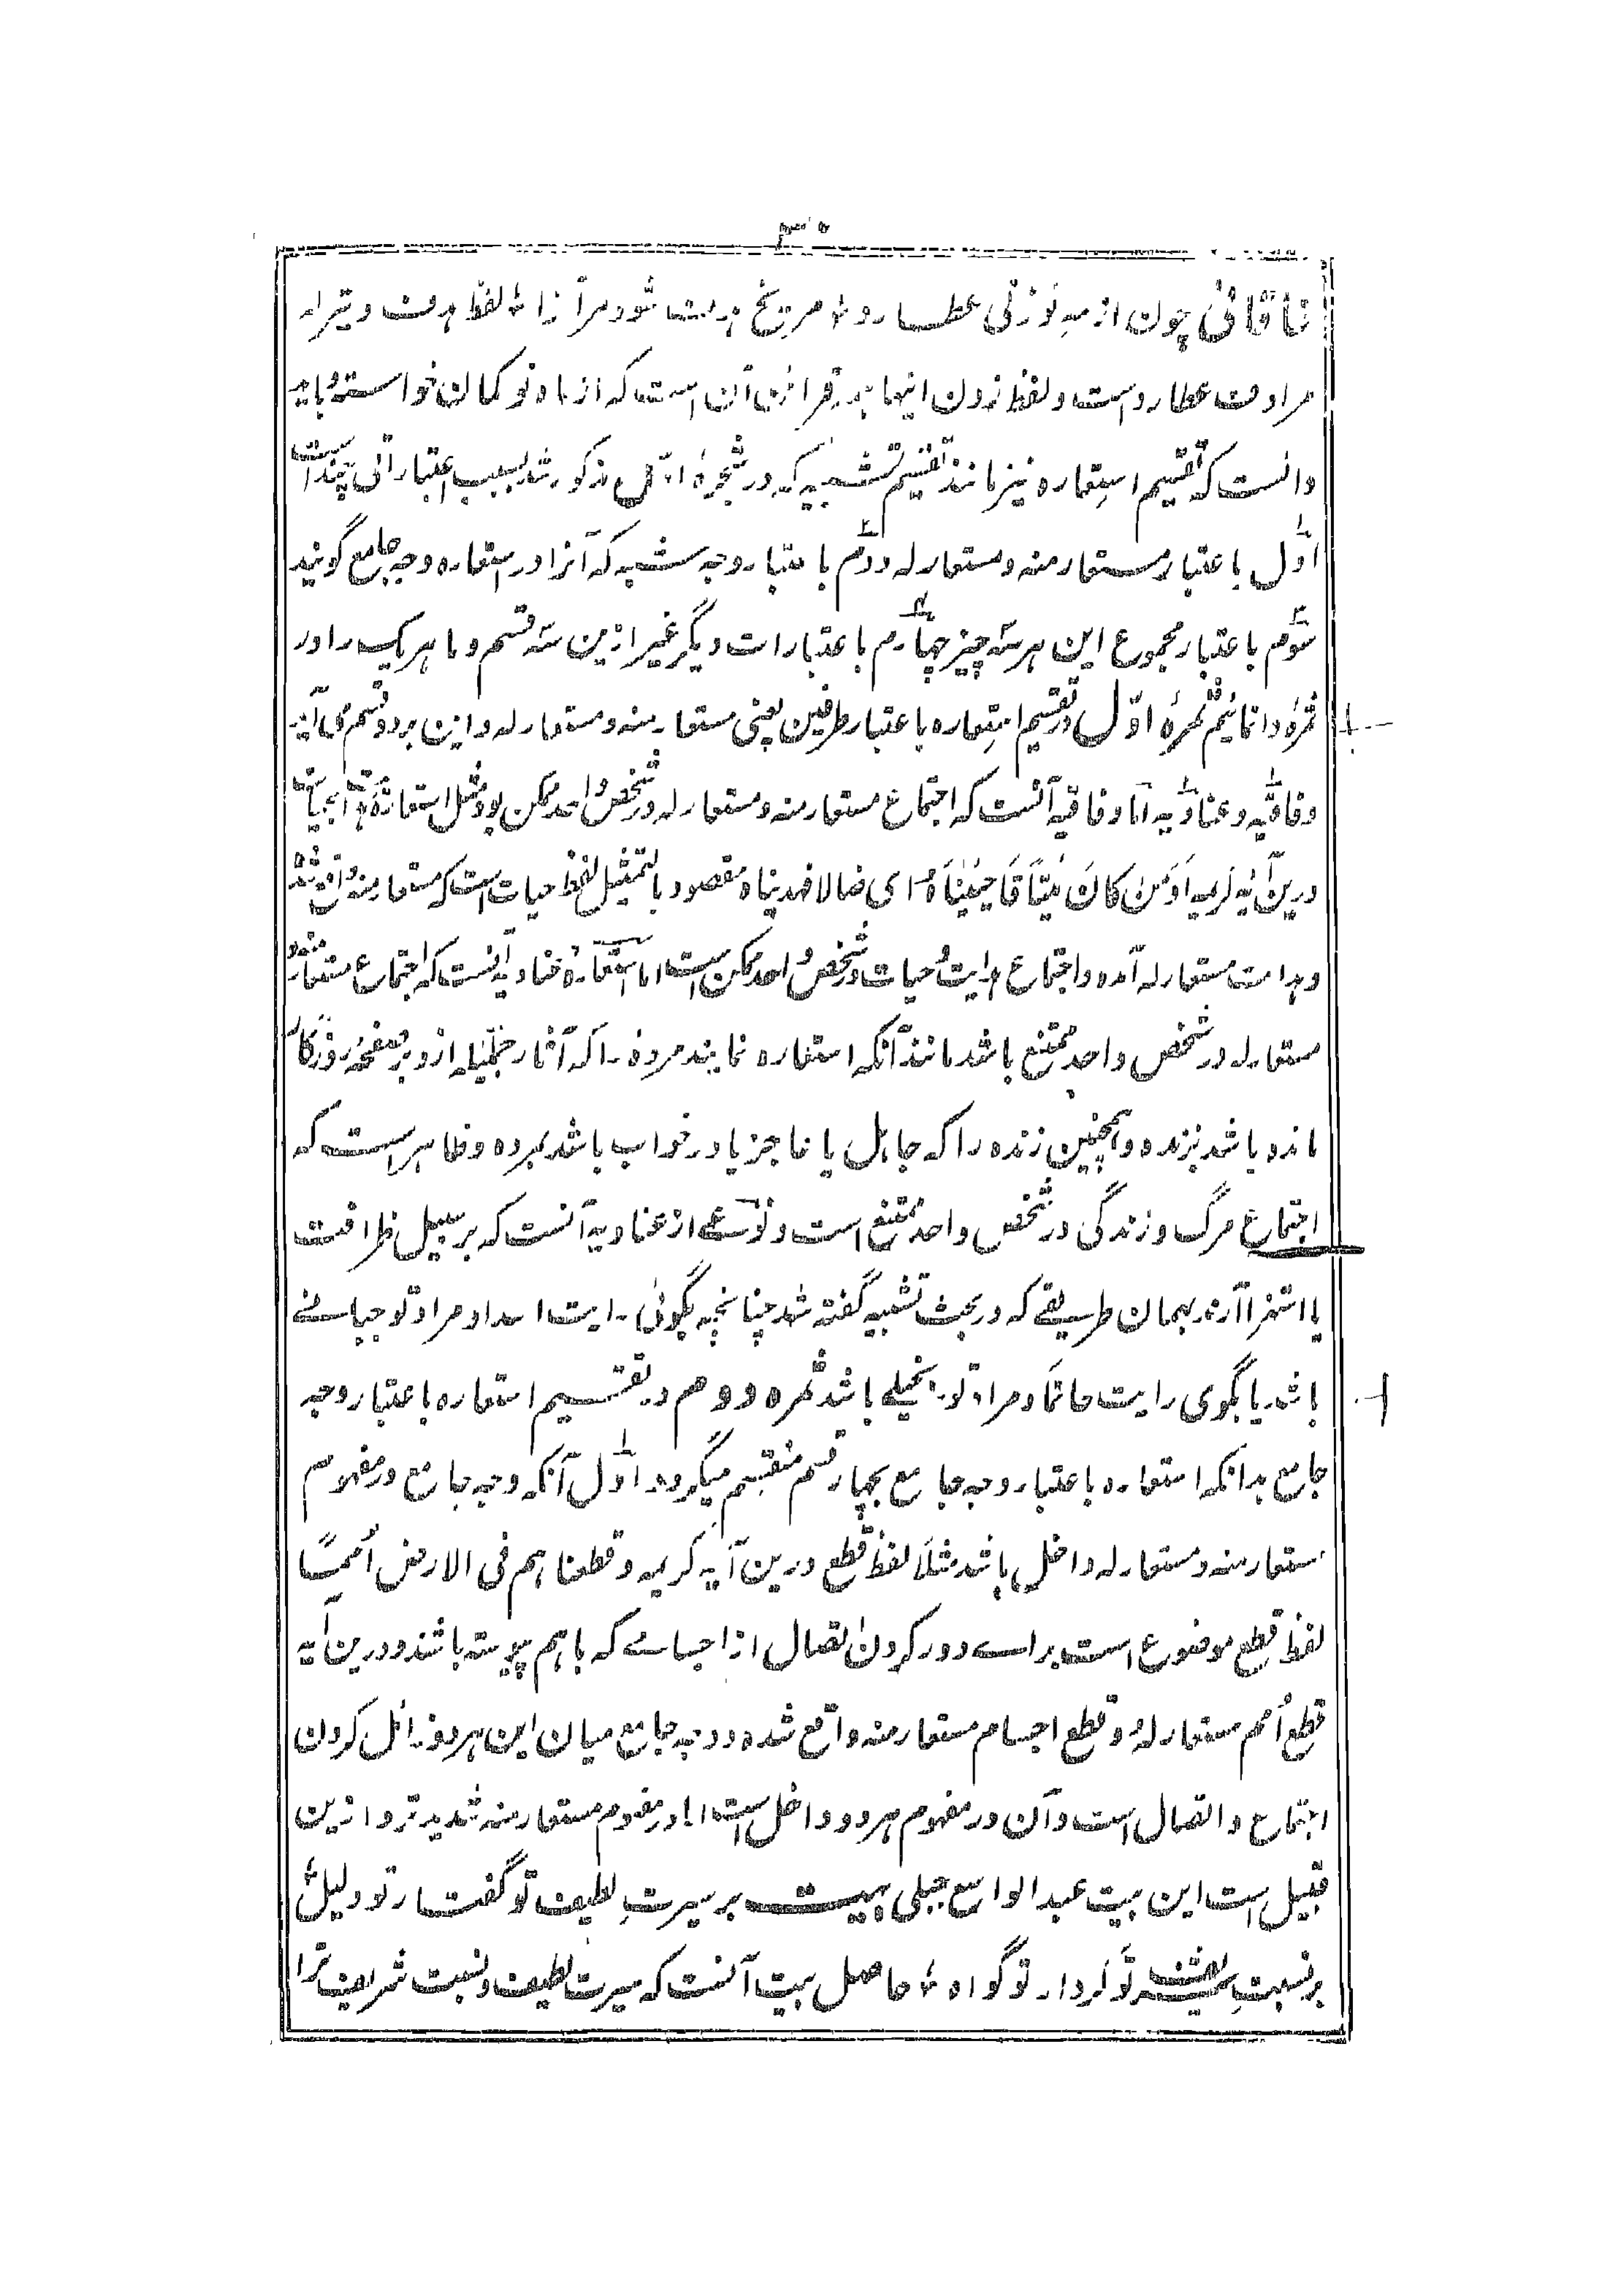 ۳۰
خاقانی چون از مه نو زنی عطارد مریخ هدف شود مرآنرا لفظ هدف و تیر که
مرادف عطارد است و لفظ زدن اینها همه قرائن آن است که از ماه نو کمان خواسته و باید
دانست که تقسیم استعاره نیز مانند تقسیم تشبیه که در شجرهٔ اول مذکور شد بسبب اعتباراتی چند است
اول باعتبار مستعار منه و مستعار له دوم باعتبار وجه شبه که آنرا در استعاره وجه جامع گویند
سوم باعتبار مجموع این هر سه چیز چهارم باعتبارات دیگر غیر ازین سه قسم و ما هر یک را در
ثمرهٔ وا نمائیم ثمرهٔ اول در تقسیم استعاره باعتبار طرفین یعنی مستعار منه و مستعار له و این بر دو قسم می آید
وفاقیه و عنادیه اما وفاقیه آنست که اجتماع مستعار منه و مستعار له در شخص واحد ممکن بود مثل استعارهٔ هدایت بحیات
درین آیه کریمه اَوَمَن کانَ مَیتًا فَاَحیَیناهُ ای ضالا فهدیناه مقصود بالتمثیل لفظ حیات است که مستعار منه واقع شده
و هدایت مستعار له آمده و اجتماع هدایت و حیات در شخص واحد ممکن است اما استعارهٔ عنادیه آنست که اجتماع مستعار منه و
مستعار له در شخص واحد ممتنع باشد مانند آنکه استعاره نمایند مرده را که آثار جمیله ازو بر صفحهٔ روزگار
مانده باشد بزنده و همچنین زنده را که جاهل یا عاجز یا در خواب باشد بمرده و ظاهر است که
اجتماع مرگ و زندگی در شخص واحد ممتنع است و نوعے از عنادیه آنست که بر سبیل ظرافت
یا استهزا آرند بهمان طریقے که در بحث تشبیه گفته شد چنانچه بگوئی رایت اسدا و مراد تو جبانے
باشد یا بگوی رایت حاتما و مراد تو بخیلے باشد ثمره دوم در تقسیم استعاره باعتبار وجه
جامع بدانکه استعاره باعتبار وجه جامع بچهار قسم منقسم میگردد اول آنکه وجه جامع در مفهوم
مستعار منه و مستعار له داخل باشد مثلاً لفظ قطع درین آیه کریمه و قطعناهم فی الارض اُمماً
لفظ قطع موضوع است براے دور کردن اتصال از اجسامے که باهم پیوسته باشند و درین آیه
قطع اُمم مستعار لهٗ و قطع اجسام مستعار منه واقع شده و وجه جامع میان این هر دو زائل کردن
اجتماع و اتصال است و آن در مفهوم هر دو داخل است اما در مفهوم مستعار منه شدید تر و ازین
قبیل است این بیت عبدالواسع جبلی بیت بر سیرتِ لطیف تو گفتار تو دلیل
بر نسبتِ شریف تو کردار تو گواه حاصل بیت آنست که سیرت لطیف و نسبت شریف ترا